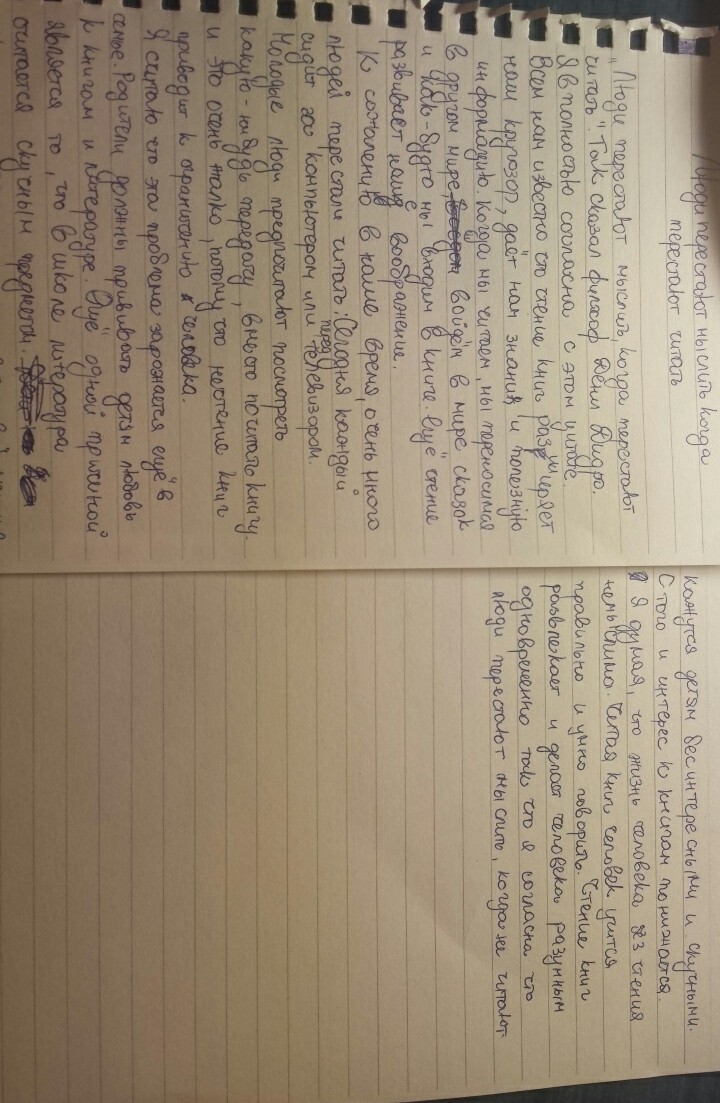 Люди перестают мыслить когда
перестают читать
"Люди перестают мыслить, когда перестают
читать." Так сказал философ Дени Дидро.
Я в полностью согласна с этом цитате.
Всем нам известно что чтение книг разширяет
нам кругозор, даёт нам знания и полезную
информацию. Когда мы читаем, мы переносимая
в другом мире, войдём в мире сказок
и как-будто мы входим в книге. Ещё чтение
развивает наше воображение.
К сожалению в наше время, очень много
людей перестали читать. Сегодня каждый
сидит за компьютером или перед телевизором.
Молодые люди предпочитают посмотреть
какую-нибудь передачу, вместо почитать книгу.
и это очень жалко, потому что нечтение книг
приводит к ограничению человека.
Я считаю что эта проблема зарождается ещё в
семье. Родители должны прививать детям любовь
к книгам и литературе. Ещё одной причиной
является то, что в школе литература
считается скучным предметом.
кажутся детям бесинтересными и скучными.
С того и интерес к книгам понижается.
Я думая, что жизнь человека без чтения
немыслимо. Читая книг человек учится
правильно и умно говорить. Чтение книг
развлекает и делает человека разумным
одновременно так что я согласна что
люди перестают мыслить, когда не читают